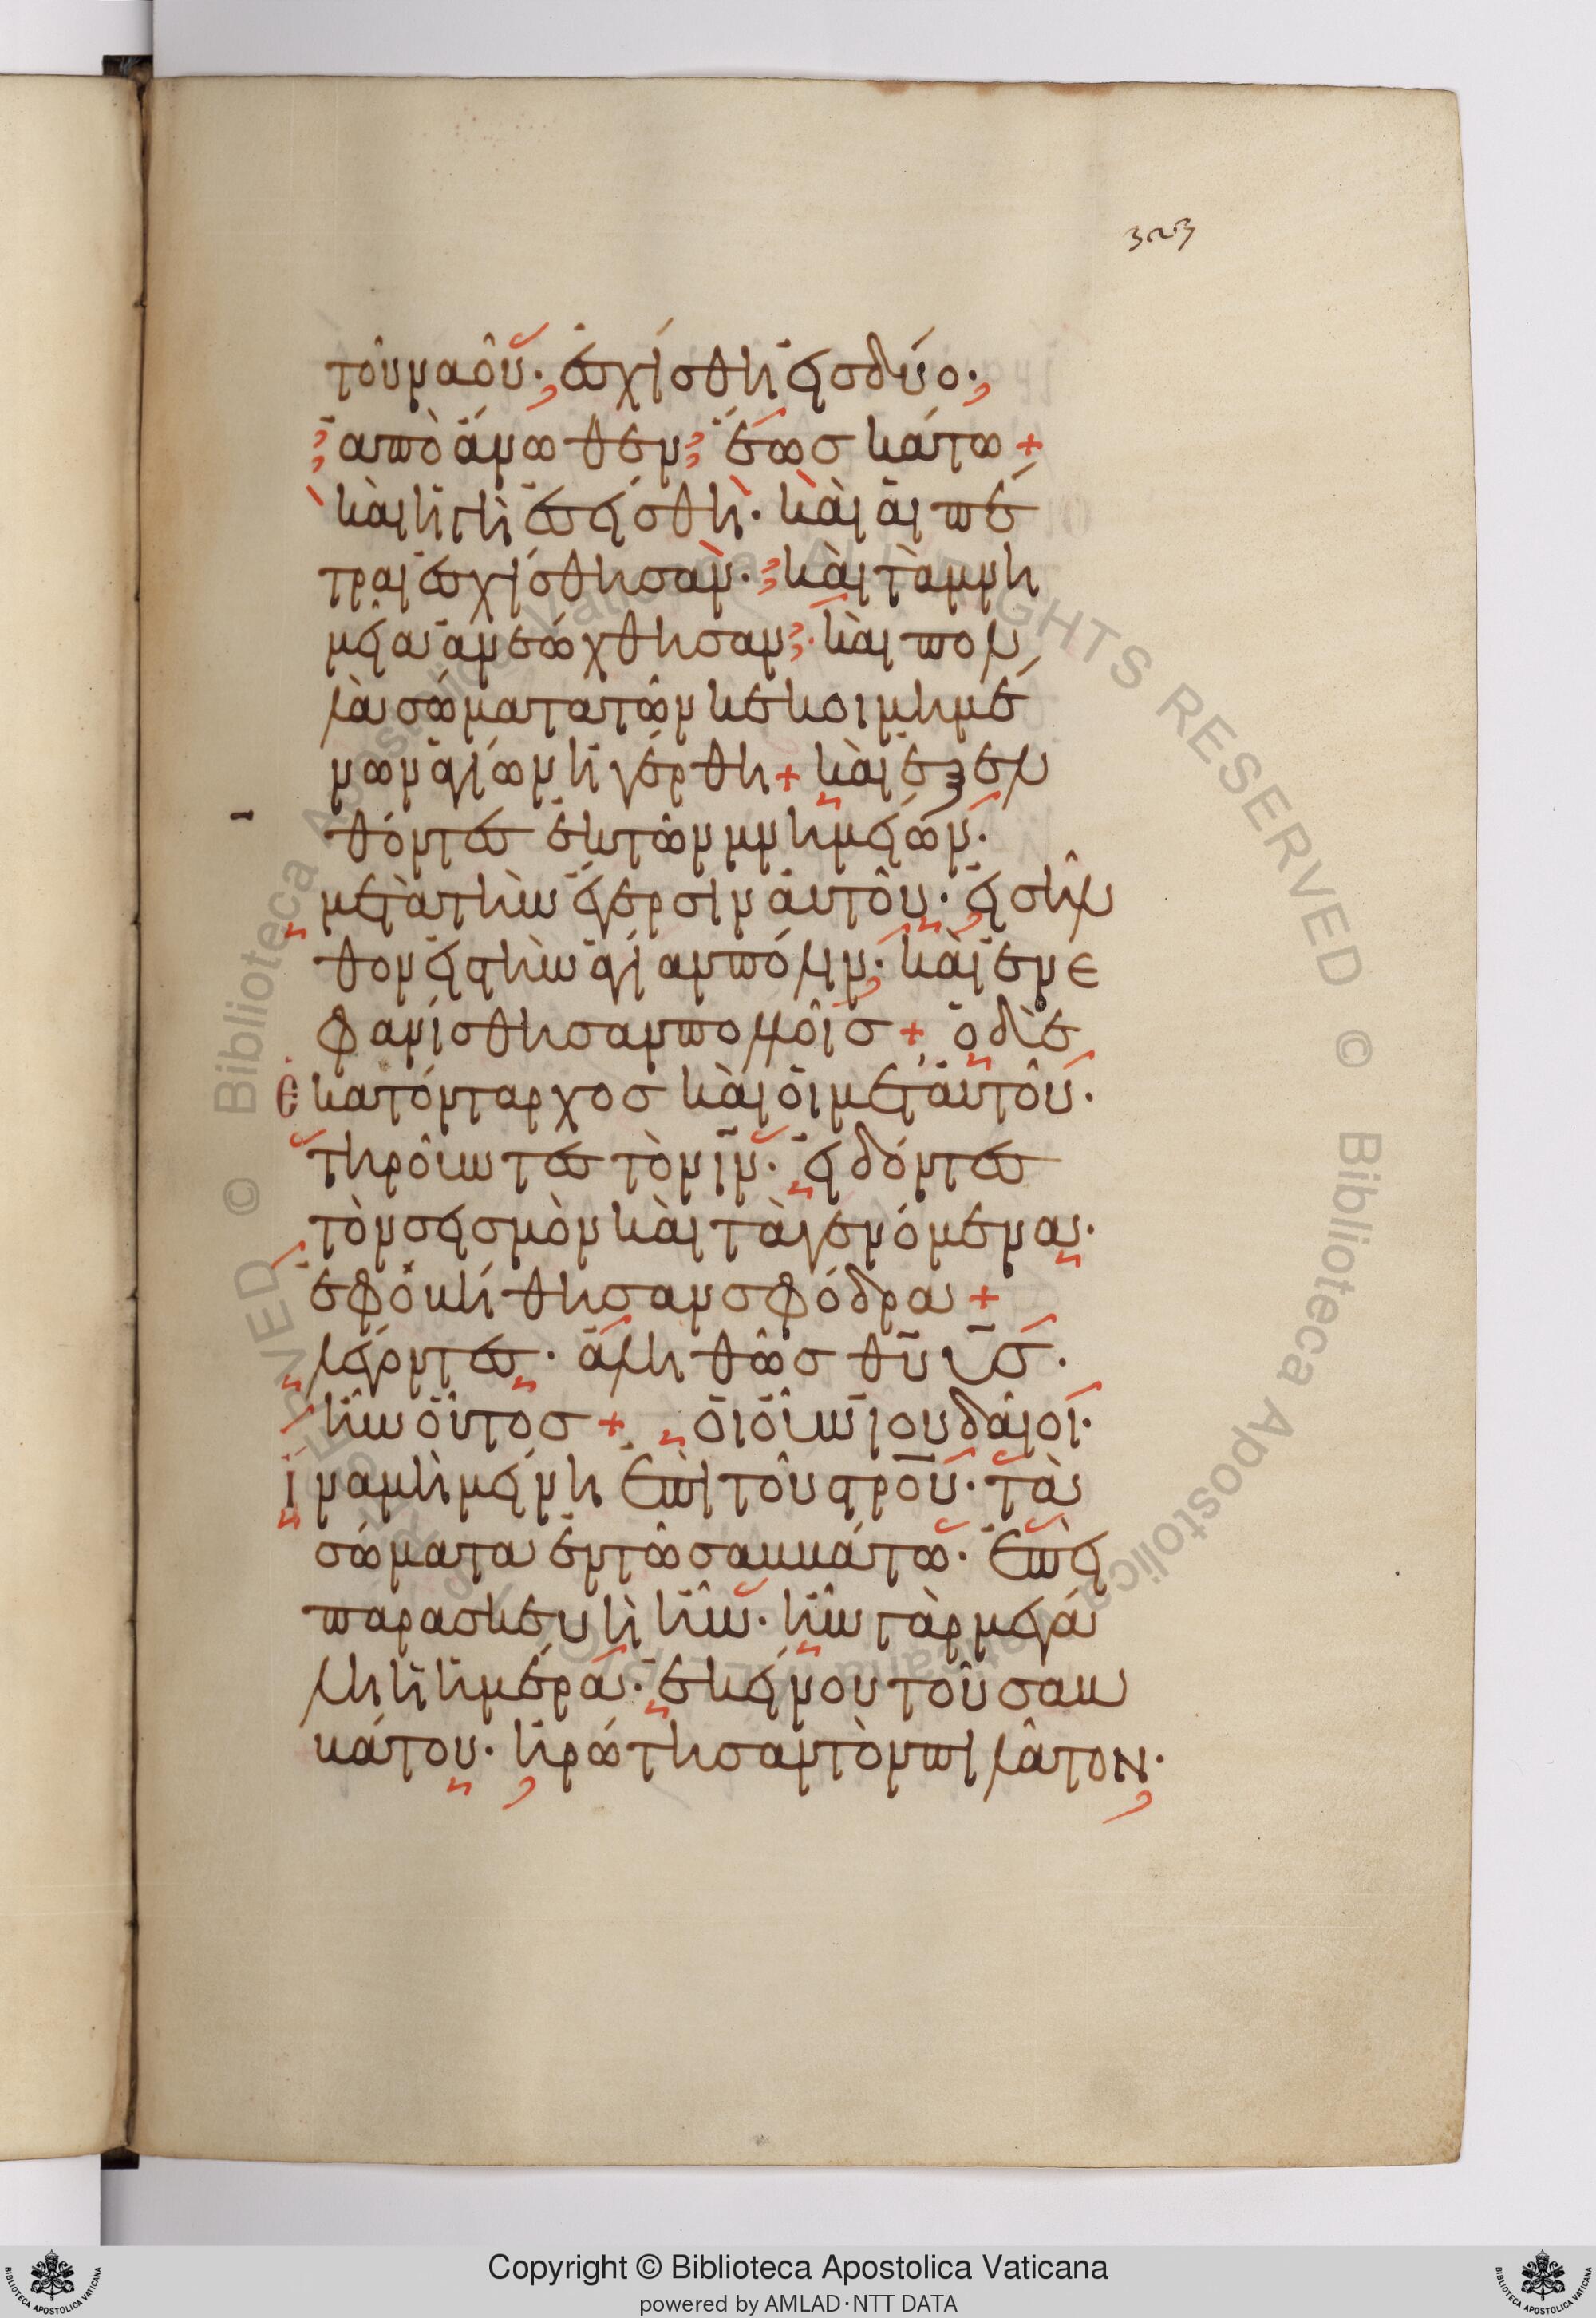 323
τοῦ ναοῦ· ἐσχίσθη εἰς δύο·
ἀπὸ ἄνωθεν ἕως κάτω +
καὶ ἡ γῆ ἐσείσθη· καὶ αἱ πέ
τραι ἐσχίσθησαν· καὶ τὰ μνη
μεῖα ἀνεώχθησαν· καὶ πολ
λὰ σώματα τῶν κεκοιμημέ
νων ἁγίων ἠγέρθη + καὶ ἐξελ
θόντες ἐκ τῶν μνημείων·
μετὰ τὴν ἔγερσιν αὐτοῦ· εἰσῆλ
θον εἰς τὴν ἁγίαν πόλιν· καὶ ἐνε
φανίσθησαν πολλοῖς + ὁ δὲ
ἑκατόνταρχος καὶ οἱ μετ' αὐτοῦ·
τηροῦντες τὸν ιν· ἰδόντες
τὸν σεισμὸν καὶ τὰ γενόμενα·
ἐφοβήθησαν σφόδρα +
λέγοντες· ἀληθῶς θυ υς·
ἦν οὗτος + οἱ οὖν ἰουδαῖοι·
ἵνα μὴ μείνη ἐπὶ τοῦ σρου· τὰ
σώματα ἐν τῶ σαββάτω· ἐπεὶ
παρασκευὴ ἦν· ἦν γὰρ μεγά
λη ἡ ἡμέρα· ἐκείνου τοῦ σαβ
βάτου· ἠρώτησαν τὸν πιλᾶτον·
Copyright © Biblioteca Apostolica Vaticana
powered by AMLAD·NTT DATA